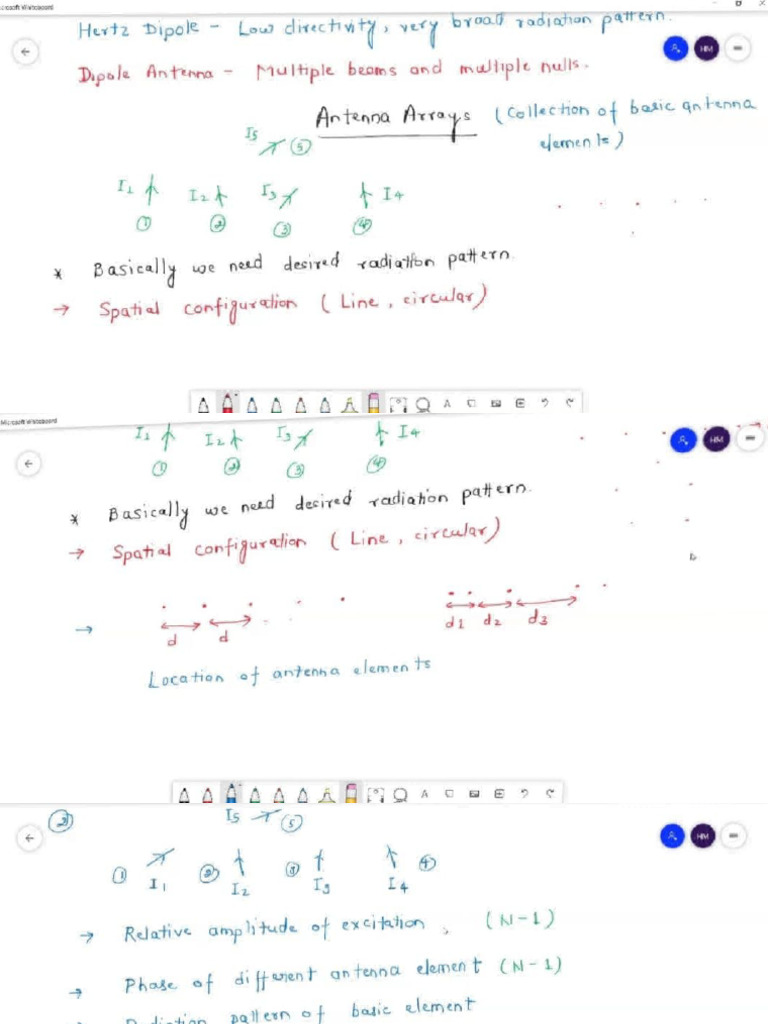 Microsoft Whiteboard
Hertz Dipole - Low directivity, very broad radiation pattern.
HM
Dipole Antenna - Multiple beams and multiple nulls.
Antenna Arrays (Collection of basic antenna
elements)
I5 5
I1 I2 I3 I4
1 2 3 4
* Basically we need desired radiation pattern.
→ Spatial configuration (Line, circular)
A
Microsoft Whiteboard
I1 I2 I3 I4
HM
1 2 3 4
* Basically we need desired radiation pattern.
→ Spatial configuration (Line, circular)
→ d d d1 d2 d3
Location of antenna elements
A
2 I5 5
HM
1 2 3 4
I1 I2 I3 I4
→ Relative amplitude of excitation, (N-1)
→ Phase of different antenna element (N-1)
→ Radiation pattern of basic element